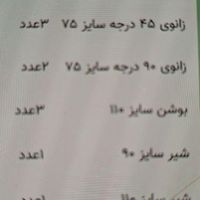 زانوی ۴۵ درجه سایز ۷۵ ۳عدد
زانوی ۹۰ درجه سایز ۷۵ ۲عدد
بوشن سایز ۱۱۰ ۳عدد
شیر سایز ۹۰ ۱عدد
شیر سایز ۱۱۰ ۱عدد